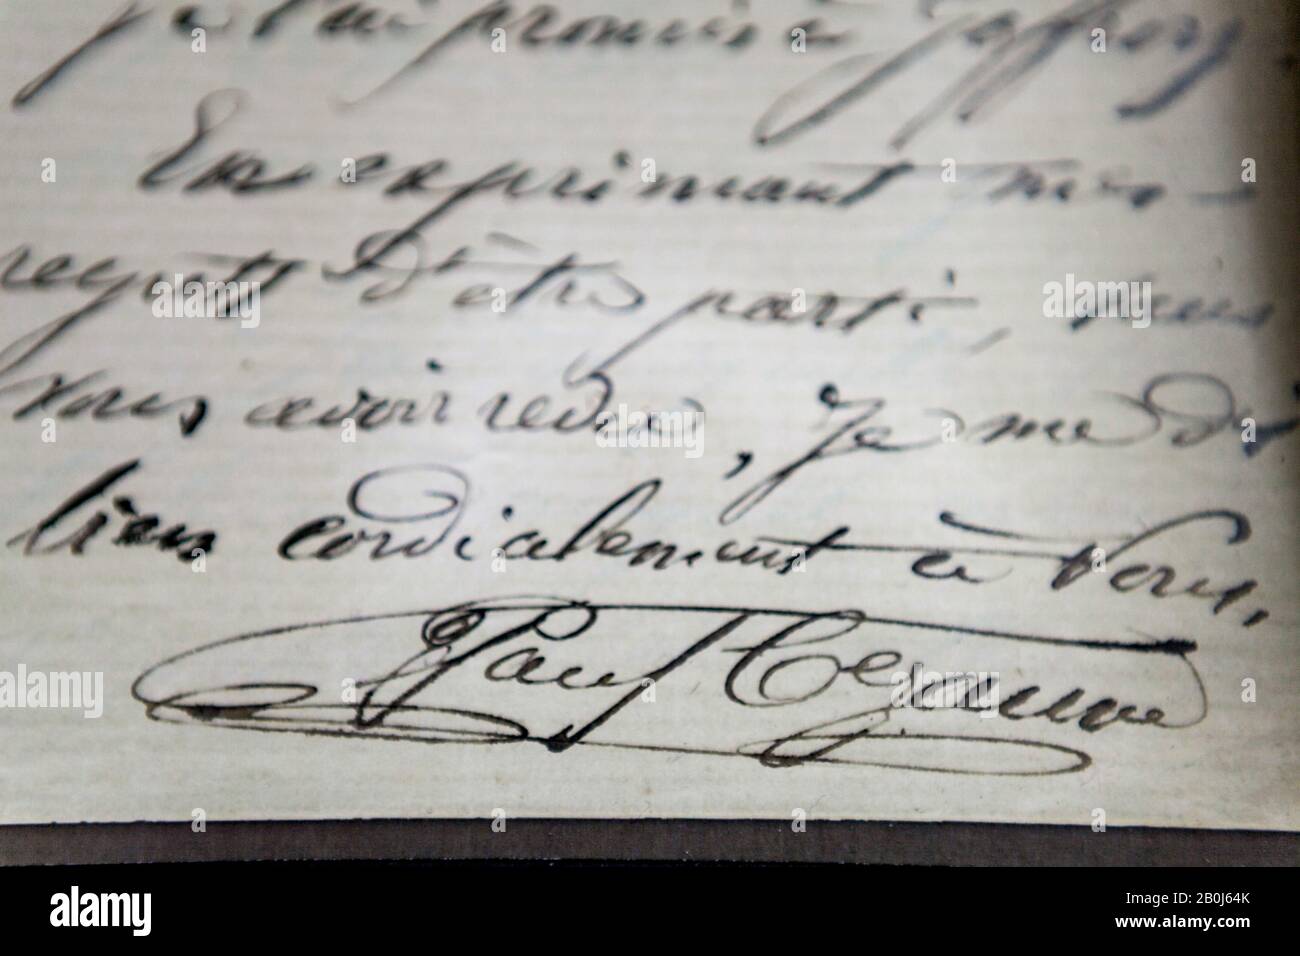 je l'ai promis à Jeffroy.
En exprimant mes
regrets d'être parti, sans
vous avoir revu, Je me dis
bien cordialement à vous,
Paul Cezanne
alamy
Image ID: 2B0J64K
www.alamy.com